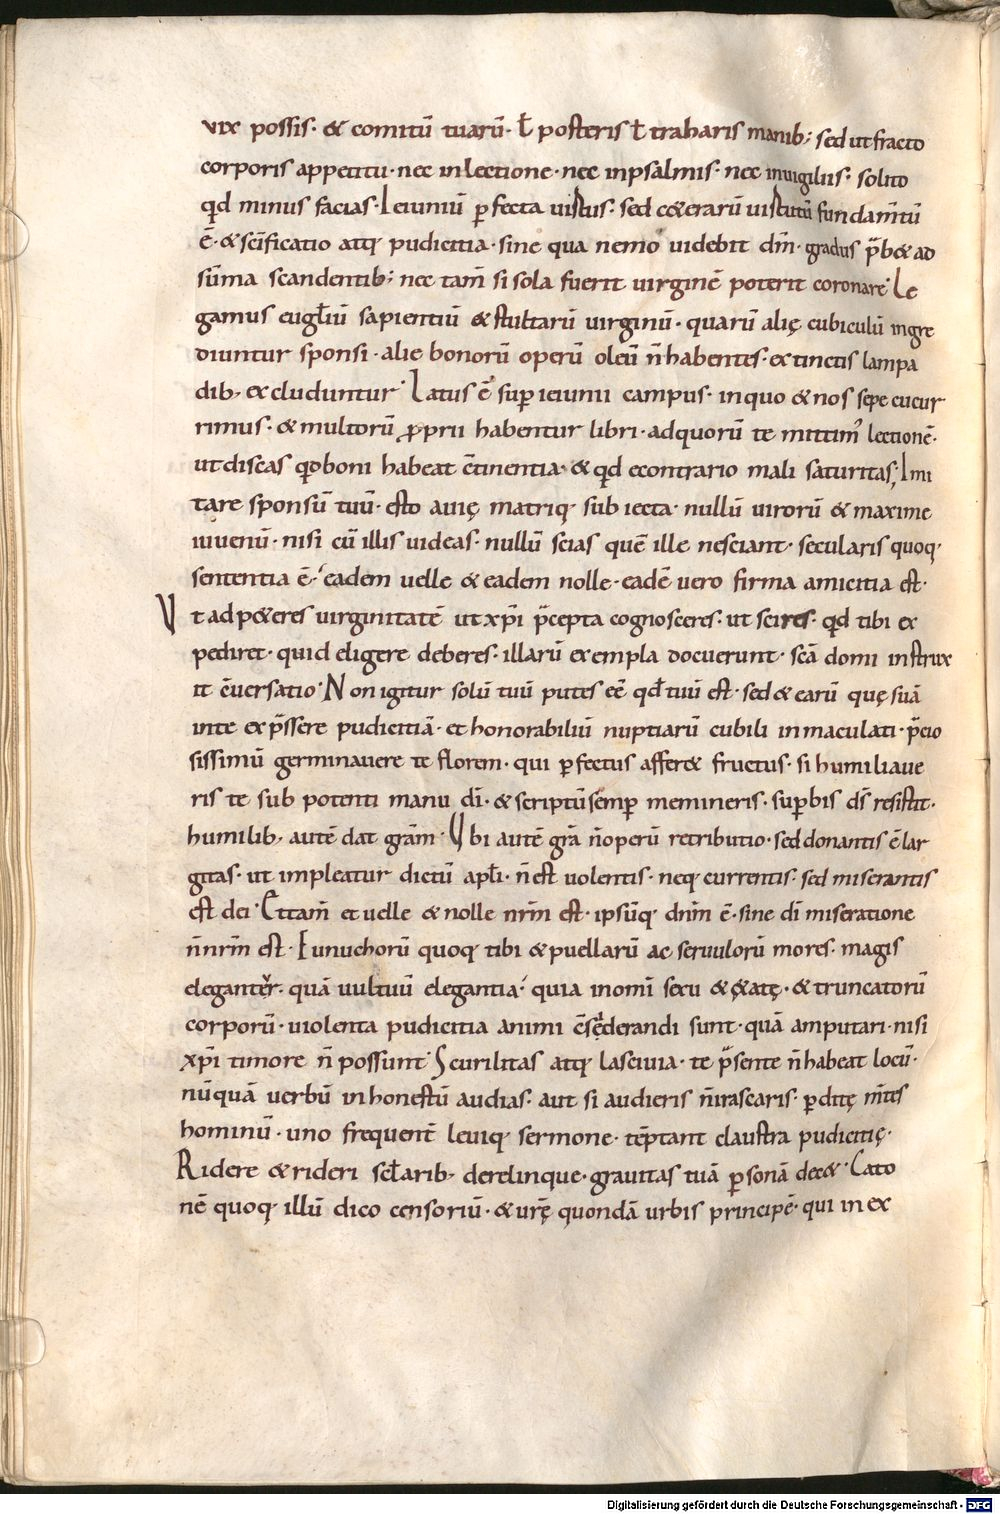 vix possis· & comitū tuarū· ł posteris ł traharis manib; sed ut fracto
corporis appetitu· nec in lectione· nec in psalmis· nec in uigiliis· solito
qđ minus facias· Ieiuniū pfecta uirtus· sed ceterarū uirtutū fundam̄tū
ē· & sc̄ificatio atq; pudicitia· sine qua nemo uidebit dm̄· gradus p̄b& ad
sūma scandentib; nec tam̄ si sola fuerit uirginē poterit coronare· Le
gamus eugl̄iū sapientiū & stultarū uirginū· quarū alię cubiculū ingre
diuntur sponsi· alie bonorū operū oleū n̄ habentes· extinctis lampa
dib; excluduntur· Latus ē sup ieiunii campus· in quo & nos sepe cucur
rimus· & multorū proprii habentur libri· ad quorū te mittim' lectionē·
ut discas qd boni habeat c̄tinentia· & qđ econtrario mali saturitas; Imi
tare sponsū tuū· esto auię matriq; subiecta· nullū uirorū & maxime
iuuenū· nisi cū illis uideas· nullū scias quē ille nesciant· secularis quoq;
sententia ē· eadem uelle & eadem nolle· eadē uero firma amicitia est·
Ut adpeteres uirginitatē ut xp̄i p̄cepta cognosceres· ut scires· qđ tibi ex
pediret· quid eligere deberes· illarū exempla docuerunt· scā domi instrux
it c̄uersatio· Non igitur solū tuū putes eē qđ tuū est· sed & earū quę suā
in te exp̄ssere pudicitiā· et honorabiliū nuptiarū cubili inmaculati· p̄cio
sissimū germinauere te florem· qui pfectus affer& fructus· si humiliaue
ris te sub potenti manu dī· & scriptū semp memineris· supbis ds̄ resistit·
humilib; autē dat grām· Ubi autē grā n̄ operū retributio· sed donantis ē lar
gitas· ut impleatur dictū apl̄i· n̄ est uolentis· neq; currentis· sed miserantis
est dei· Et tam̄ et uelle & nolle nr̄m est· ipsūq; dnm̄ ē· sine dī miseratione
n̄ nr̄m est· Eunuchorū quoq; tibi & puellarū ac seruulorū mores· magis
eligantur· quā uultuū elegantia· quia in om̄i sexu & ętatę· & truncatorū
corporū· uiolenta pudicitia animi c̄siderandi sunt· quā amputari· nisi
xp̄i timore n̄ possunt· Scurilitas atq; lasciuia· te p̄sente n̄ habeat locū·
nūquā uerbū inhonestū audias· aut si audieris n̄ irascaris· pditę m̄tes
hominū· uno frequent̄ leuiq; sermone· tēptant claustra pudicitię·
Ridere & rideri scl̄arib; derelinque· grauitas tuā psonā dec&· Cato
nē quoq; illū dico censoriū· & urę̄ quondā urbis principē· qui in ex
Digitalisierung gefördert durch die Deutsche Forschungsgemeinschaft - DFG